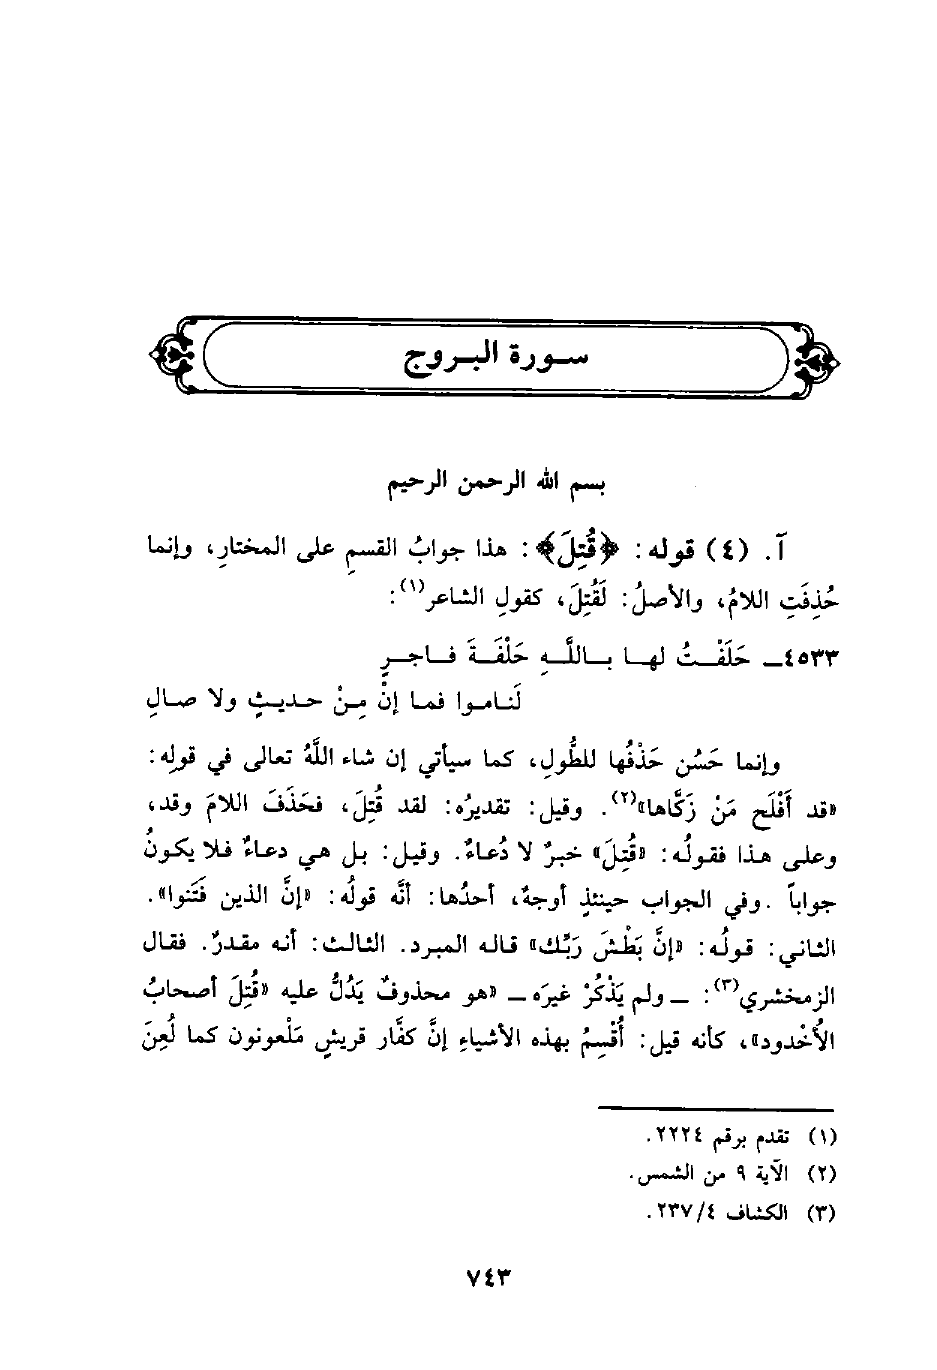 سورة البروج
بسم الله الرحمن الرحيم
آ. (٤) قوله: ﴿قُتِلَ﴾: هذا جوابُ القسمِ على المختارِ، وإنما
حُذِفَتِ اللامُ، والأصلُ: لَقُتِلَ، كقولِ الشاعر(١):
٤٥٣٣ـ حَلَفْتُ لها بـاللَّـهِ حَلْفَةَ فـاجـرٍ
لَناموا فما إنْ مِنْ حديثٍ ولا صالِ
وإنما حَسُن حَذْفُها للطُّولِ، كما سيأتي إن شاء اللَّهُ تعالى في قولِه:
«قد أَفْلَح مَنْ زَكَّاها»(٢). وقيل: تقديرُه: لقد قُتِلَ، فحَذَفَ اللامَ وقد،
وعلى هذا فقولُه: «قُتِلَ» خبرٌ لا دُعاءٌ. وقيل: بل هي دعاءٌ فلا يكونُ
جواباً .وفي الجواب حينئذٍ أوجهٌ، أحدُها: أنَّه قولُه: «إنَّ الذين فَتَنوا».
الثاني: قولُه: «إنَّ بَطْشَ رَبِّك» قاله المبرد. الثالث: أنه مقدرٌ. فقال
الزمخشري(٣): ـ ولم يَذْكُرْ غيرَه ـ «هو محذوفٌ يَدُلُّ عليه «قُتِلَ أصحابُ
الأُخْدود»، كأنه قيل: أُقْسِمُ بهذه الأشياءِ إنَّ كفَّار قريشٍ مَلْعونون كما لُعِنَ
(١) تقدم برقم ٢٢٢٤.
(٢) الآية ٩ من الشمس.
(٣) الكشاف ٢٣٧/٤.
٧٤٣